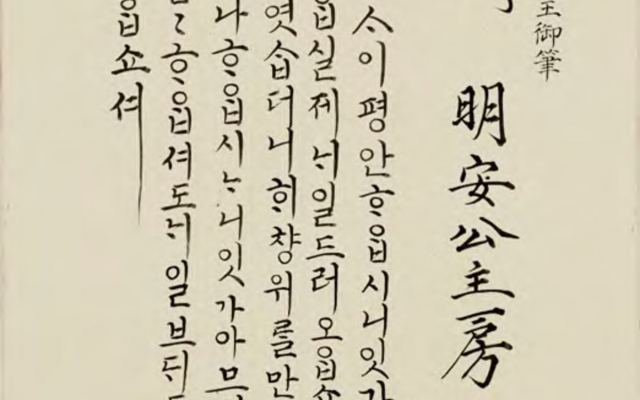 王御筆
明安公主房
ᄉᆞ이평안ᄒᆞᄋᆞᆸ시니잇가
ᄋᆞᆸ실제ᄂᆡ일드러오ᄋᆞᆸ쇼
엿ᄉᆞᆸ더니ᄒᆡ챵위를만
나ᄒᆞᄋᆞᆸ시ᄂᆞ니잇가아므
ᄒᆞᄋᆞᆸ셔도ᄂᆡ일브ᄃᆡ
ᄋᆞᆸ쇼셔